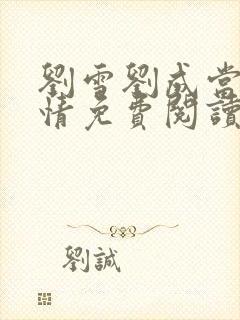 劉雪劉成當
情免費閱讀
劉誠